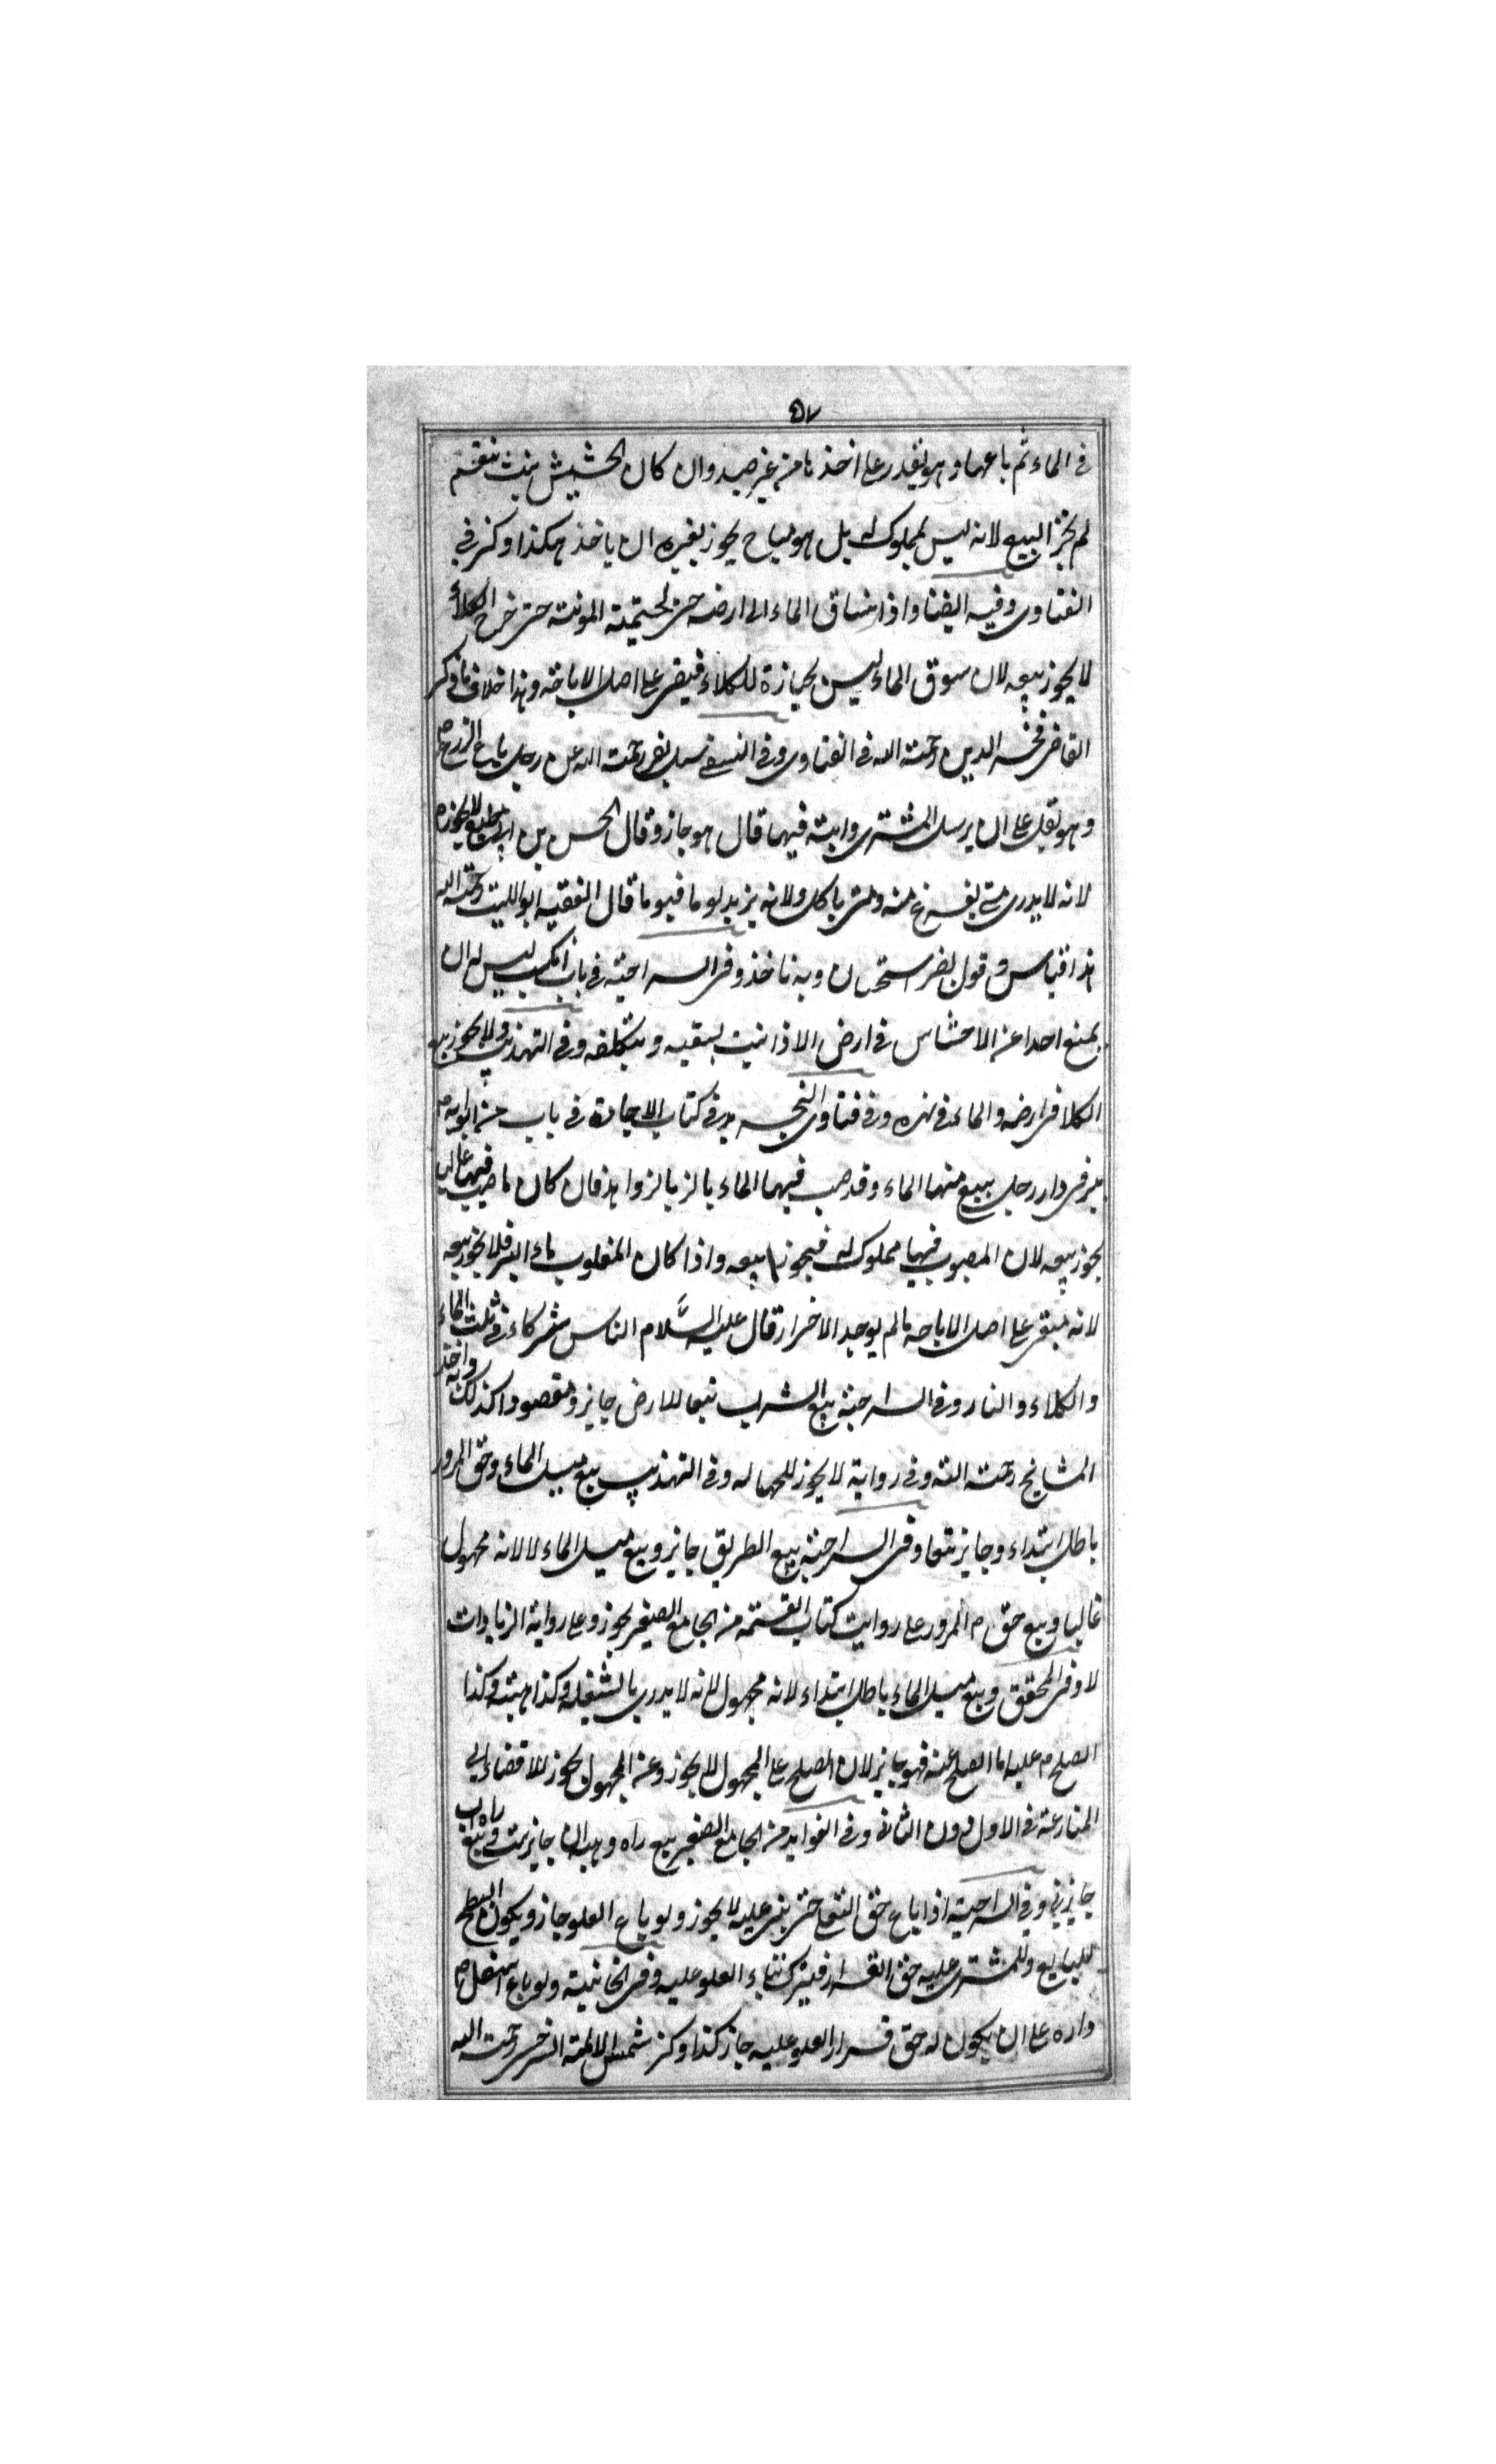 ٥٧
في الماء ثم باعها وهو يقدر على اخذها من غير صيد وان كان الحشيش ينبت بنفسه
لم يجز البيع لانه ليس بمملوك له بل هو مباح يجوز لغيره ان ياخذ هكذا وكر في
الفتاوى وفيه ايضا واذا ساق الماء الى ارضه حتى لحقته المونة حتى خرج الكلاء
لا يجوز بيعه لان سوق الماء ليس بحيازة للكلاء فيبقى على اصل الاباحة وهذا خلاف ما ذكر
القاضى فخر الدين رحمة الله فى الفتاوى وفى النسفى سئل نصر رحمة الله عن رجل باع الزرع
وهو بقل على ان يرسل المشترى دابته فيها قال هو جاز وقال الحسن بن ابى مطيع لا يجوز
لانه لا يدرى متى يفرغ منه ومتى ياكل ولانه يزيد يوما فيوما قال الفقيه ابو الليث رحمة الله
هذا قياس وقول نصر استحسان وبه ناخذ وفى السراجية فى باب الكسب ليس له ان
يمنع احدا عن الاحتشاش فى ارض الا اذا نبت بسقيه وبتكلفه وفى التهذيب ولا يجوز بيع
الكلا فى ارضه والماء فى نهره وفى فتاوى الحجة بير فى كتاب الاجارة فى باب من ابوابه
بير فى دار رجل يبيع منها الماء وقد صب فيها الماء فان كان ما صب فيها غالب
يجوز بيعه لان المصبوب فيها مملوك له فيجوز بيعه واذا كان المغلوب ماء البير فلا يجوز بيعه
لانه يبقى على اصل الاباحه مالم يوجد الاحراز قال عليه السَّلام الناس شركاء فى ثلث الماء
والكلاء والنار وفى السراجية بيع الشرب تبعا للارض جايز ومقصودا كذلك وبه اخذ
المشايخ رحمة الله وفى رواية لا يجوز للجهالة وفى التهذيب بيع مسيل الماء وحق المرور
باطل ابتداء وجايز تبعا وفى السراجية بيع الطريق جايز وبيع مسيل الماء لا لانه مجهول
غالبا وبيع حق م المرور على روايت كتاب القسمة من الجامع الصغير يجوز وعلى رواية الزيادات
لا وفى المحقق وبيع مسيل الماء باطل ابتداء لانه مجهول لانه لا يدرى ما يشغله وكذا هبته وكذا
الصلح م عليه اما الصلح عنه فهو جايز لان الصلح على المجهول لا يجوز وعن المجهول يجوز للافضاء الى
المنازعة فى الاول دون الثانى وفى الفوايد من الجامع الصغير بيع راه وهبة ان جايزست وبيع راه اب
جايز نى وفى السراجية اذا باع حق التعلى حتى يبنى عليه لا يجوز ولو باع العلو جاز ويكون السطح
للبايع وللمشترى عليه حق القرار فيترك بناء العلو عليه وفى الخانية ولو باع اسفل
داره على ان يكون له حق قرار العلو عليه جاز كذا وكر شمس الائمة السرخسى رحمت الله